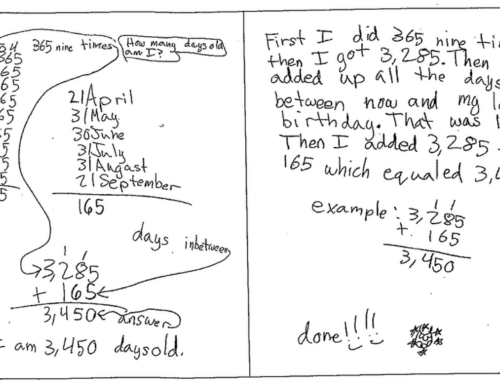 34
365
65
65
65
65
5
5
5
5
365 nine times
How many days old
am I?
21 April
31 May
30 June
31 July
31 Augast
21 September
165
days inbetween
1 1
3,285
+ 165
3,450 answer
am 3,450 days old.
First I did 365 nine
then I got 3,285. Then
added up all the days
between now and my
birthday. That was
Then I added 3,285
165 which equaled
example: 3,285
1 1
+ 165
3,450
done!!!!